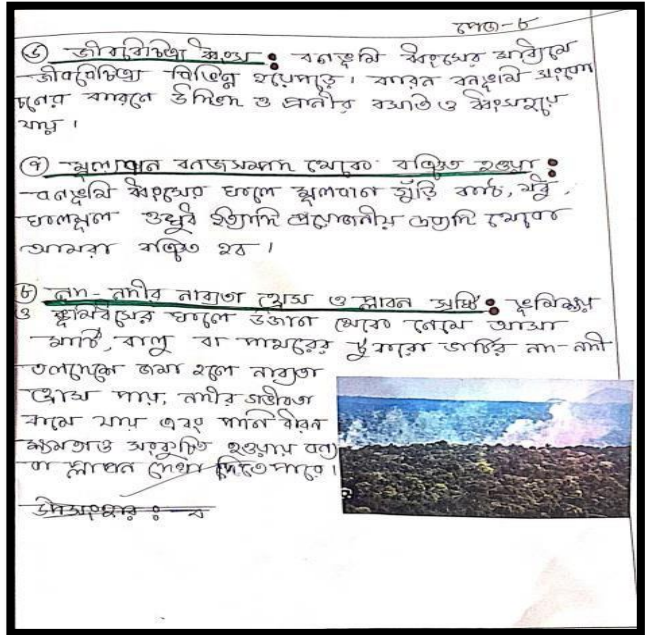 পেজ-৮
৬ জীববৈচিত্র্য ধ্বংস : বনভূমি ধ্বংসের মাধ্যমে
জীববৈচিত্র্য বিভিন্ন হয়েপড়ে। কারন বনভূমি সংকো
চনের কারনে উদ্ভিদ ও প্রানীর বসতি ও ধ্বংসহয়ে
যায়।
৭ মূল্যবান বনজসম্পদ থেকে বঞ্চিত হওয়া :
বনভূমি ধ্বংসের ফলে মূলবান গুঁড়ি কাঠ, মধু,
ফলমূল ওষুধ ইত্যাদি প্রয়োজনীয় দ্রব্যাদি থেকে
আমরা বঞ্চিত হব।
৮ নদ-নদীর নাব্যতা হ্রাস ও প্লাবন সৃষ্টি : ভূমিক্ষয়
ও ভূমিধসের ফলে উজান থেকে নেমে আসা
মাটি, বালু বা পাথরের টুকরো ভাটির নদ-নদী
তলদেশে জমা হলে নাব্যতা
হ্রাস পায়, নদীর গভীরতা
কমে যায় এবং পানি ধারন
ক্ষমতাও সংকুচিত হওয়ায় বন্যা
বা প্লাবন দেখা দিতেপারে।
উপসংহার : ব